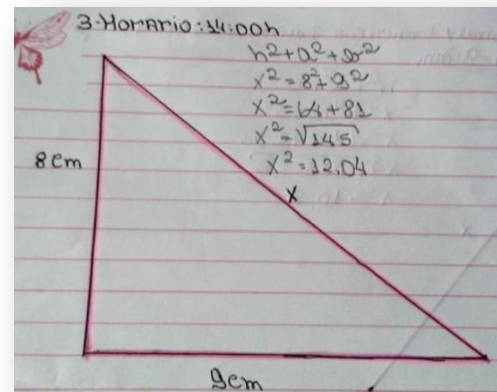 3-Horario:14:00h
h²+a²+b²
x²=8²+9²
x²=64+81
x²=√145
x²=12.04
8cm
x
9cm